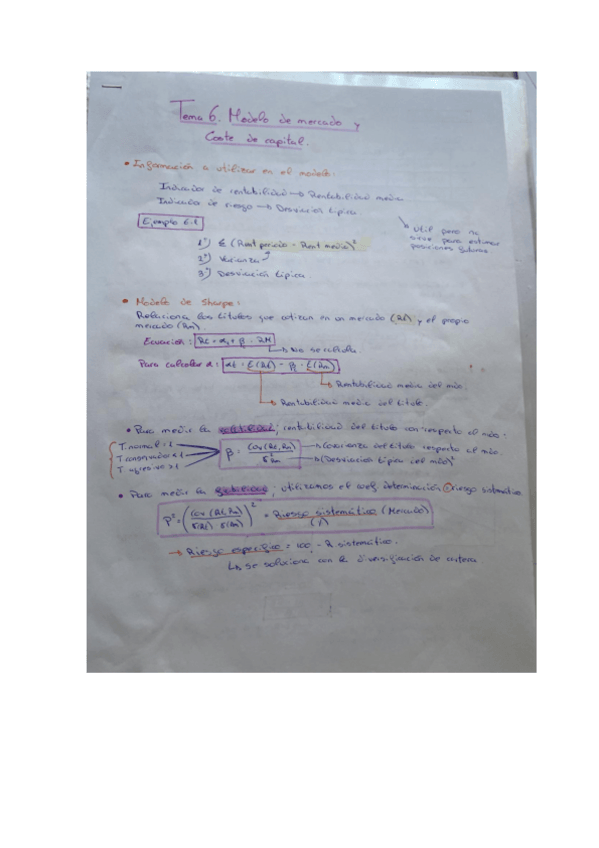 Tema 6. Modelo de mercado y
Coste de capital.
• Información a utilizar en el modelo:
Indicador de rentabilidad → Rentabilidad media
Indicador de riesgo → Desviación típica
Util pero no
sirve para estimar
posiciones futuras
Ejemplo 6.1
1º) Σ (Rent periodo - Rent media)²
2º) Varianza
3º) Desviación típica
• Modelo de Sharpe:
Relaciona los títulos que cotizan en un mercado (Rt) y el propio
mercado (Rm).
Ecuación: Rt = α + β · RM
→ No se calcula
Para calcular α: αt = E(Rt) - β · E(Rm)
→ Rentabilidad media del mdo.
→ Rentabilidad media del título.
• Para medir la ; rentabilidad del título con respecto al mdo:
T. normal = 1
T. conservador < 1
T. agresivo > 1
β = Cov(Rt, Rm) / σ² Rm
→ Covarianza del título respecto al mdo.
→ (Desviación típica del mdo)²
• Para medir la ; utilizamos el coef determinación riesgo sistemático
P² = (Cov(Rt, Rm) / σ(Rt) · σ(Rm))² = Riesgo sistemático (Mercado)
(%)
→ Riesgo específico = 100 - R sistemático.
↳ se soluciona con la diversificación de cartera